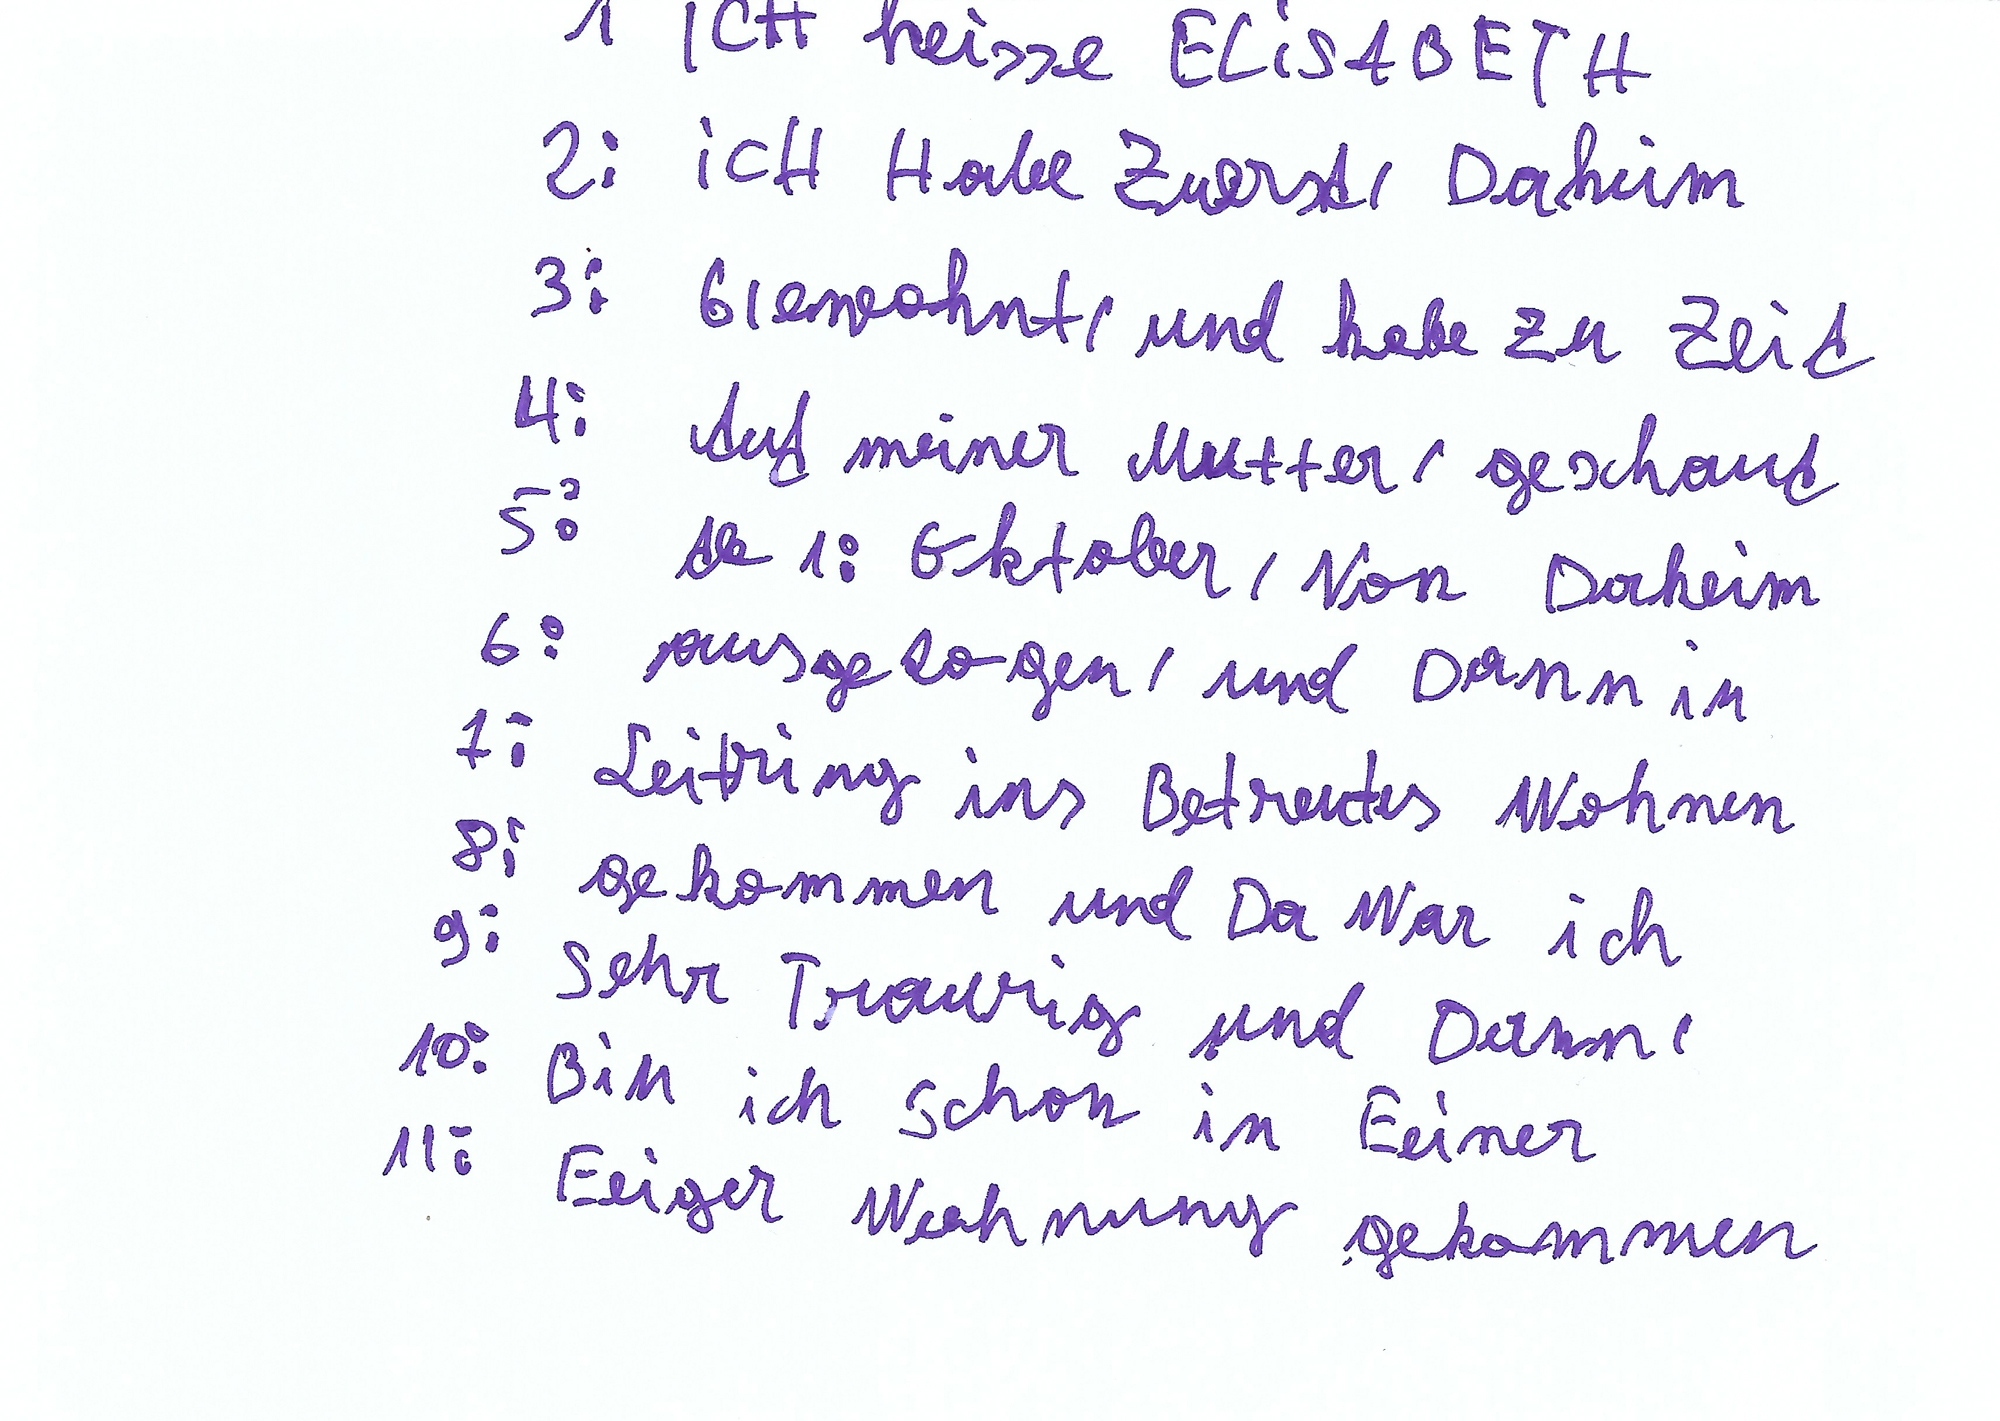 1 ICH heisse ELiSABETH
2: icH Habe Zuerst, Daheim
3: Gewohnt, und habe zu Zeit
4: Auf meiner Mutter, geschaut
5: 1: Oktober, Von Daheim
6: ausgezogen, und Dann in
7: Leitring ins Betreutes Wohnen
8: gekommen und Da War ich
9: Sehr Traurig und Dann,
10: Bin ich Schon in Eeiner
11: Eeiger Wohnung gekommen